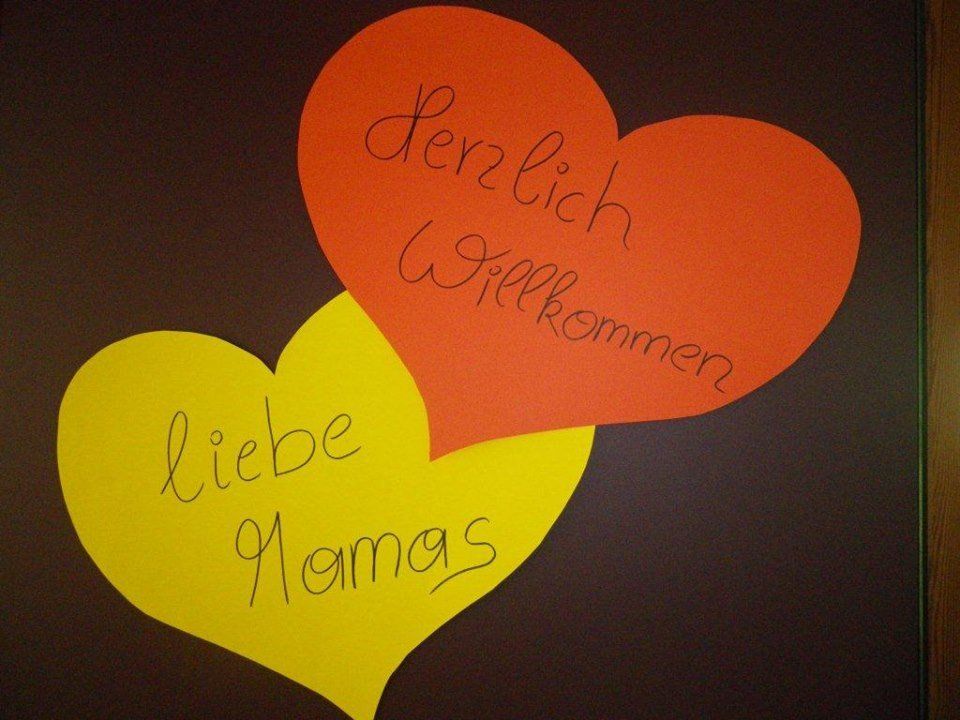 Herzlich
Willkommen
liebe
Mamas